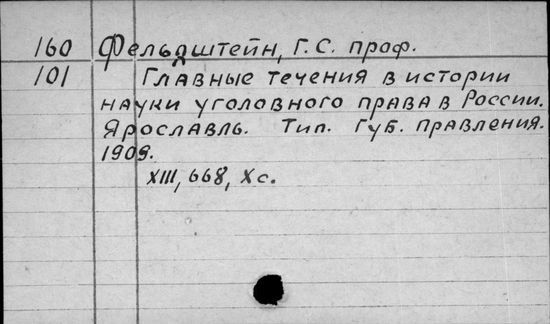 160 Фельдштейн, Г. С. проф.
101 Главные течения в истории
науки уголовного права в России.
Ярославль. Тип. Губ. правления.
1909.
XIII, 668, X с.